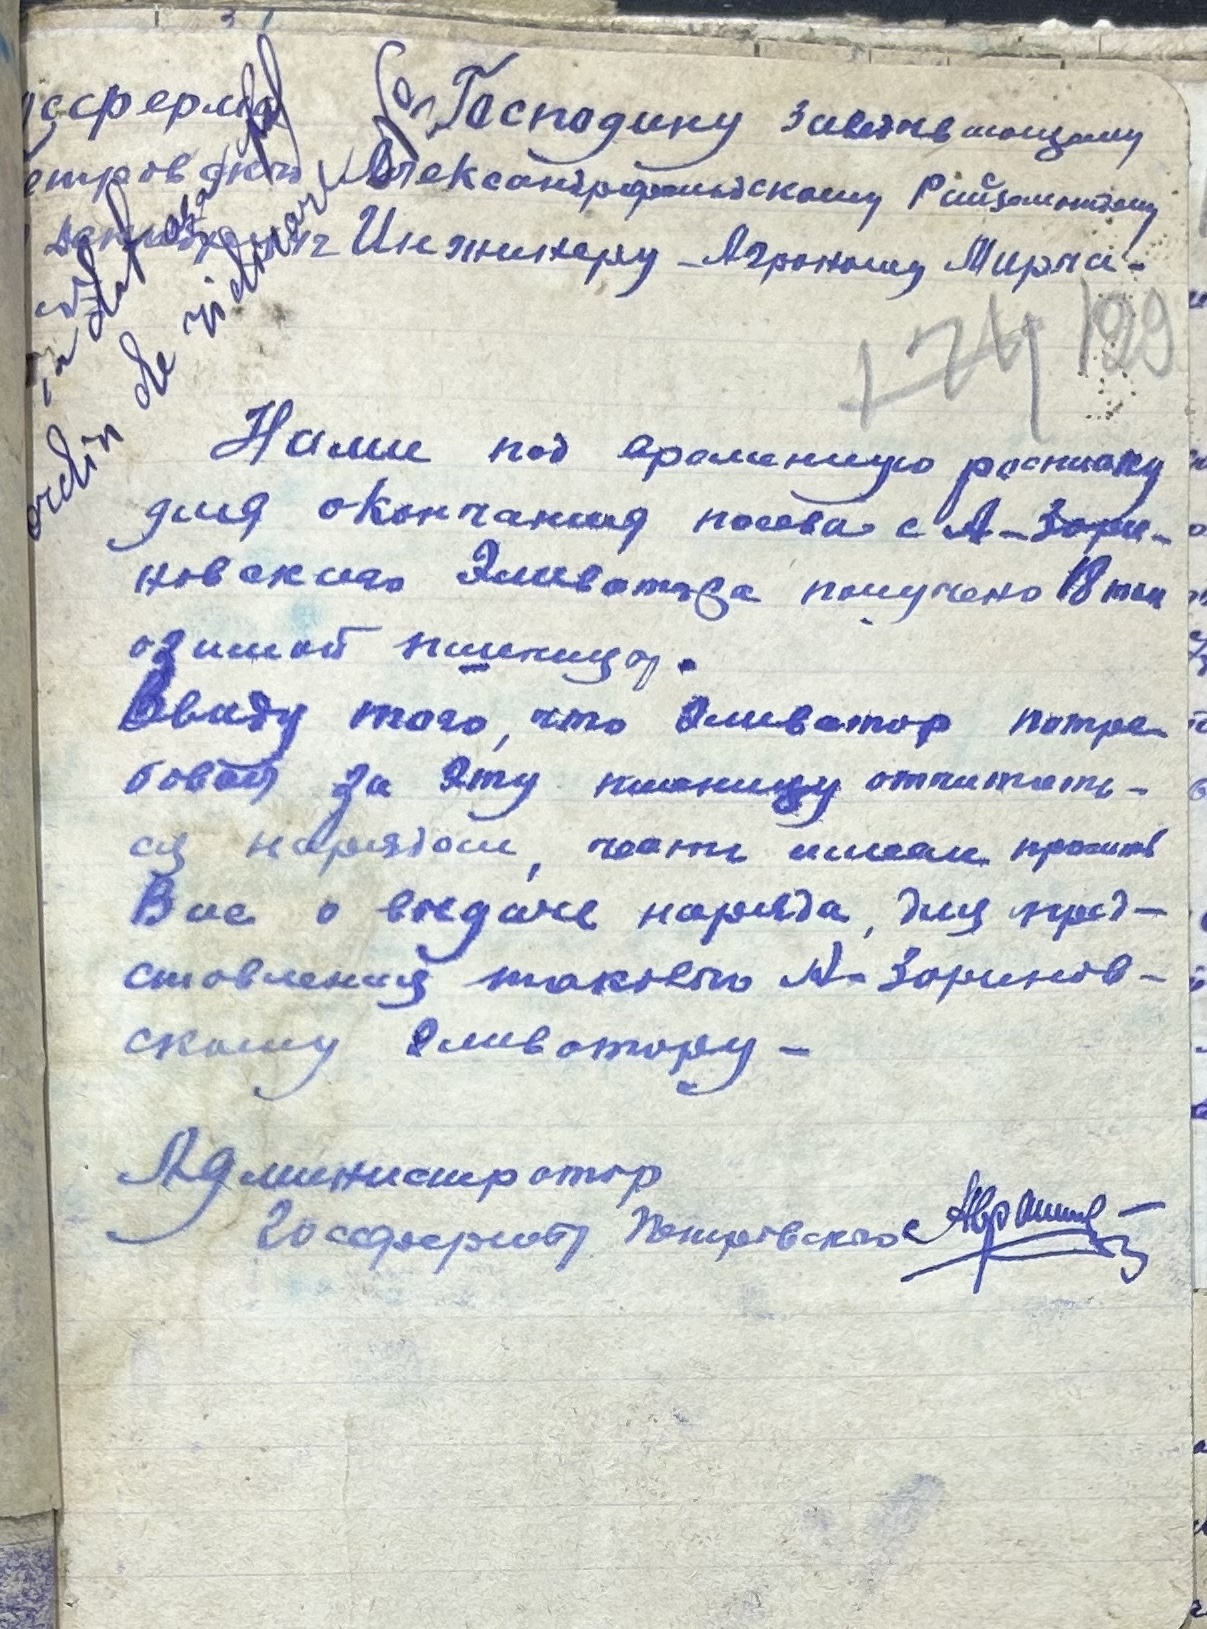 Госферма
Господину Заведывающему
Александрфельдскому Райземотделу
Инжинеру-Агроному Мирча-
174 199
ordin de
Нами под временную расписку
для окончания посева с А-Зари-
новского Эливатора получено 18 тон
озимой пшеницы.
Ввиду того, что Эливатор потре-
бовал за эту пшеницу отчитать-
ся нарядом, честь имеем просить
Вас о выдаче наряда, для пред-
ставления такового А-Заринов-
скому Эливатору-
Администратор
Госфермы Петровского